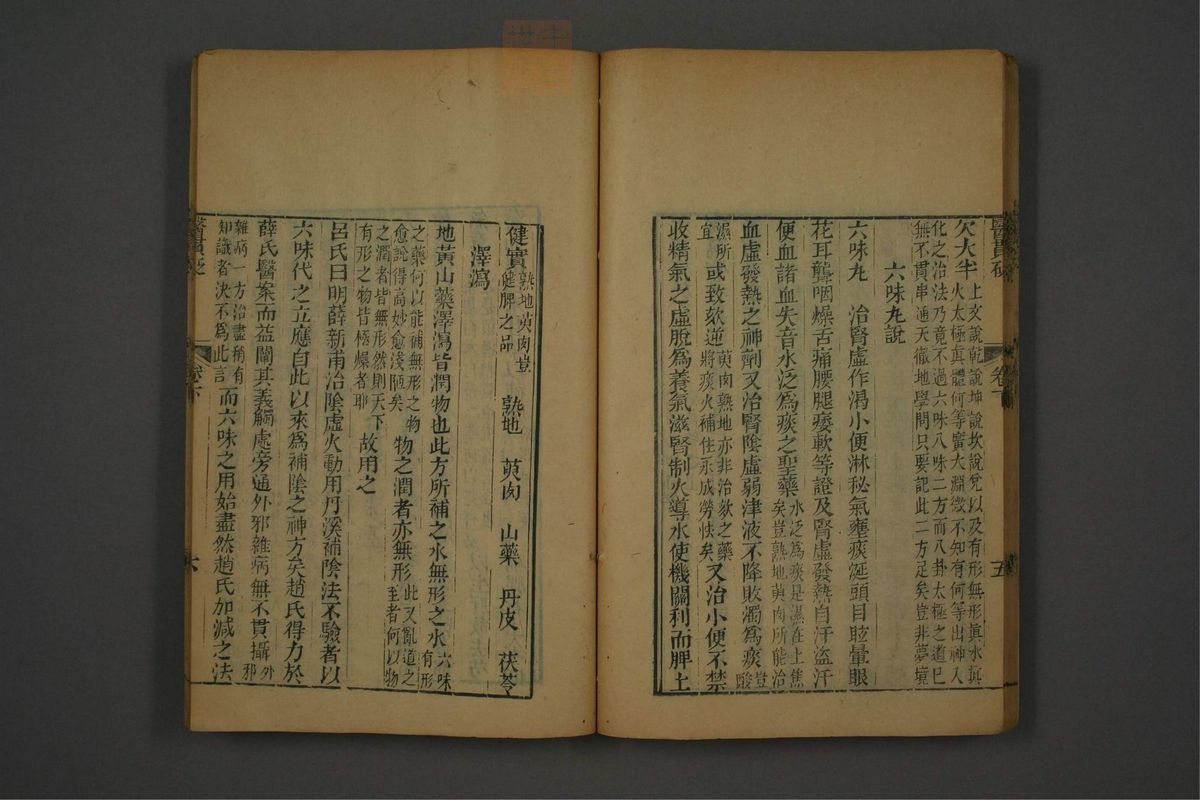 醫貫砭
卷下
五
欠大半上文說乾說坤說坎說兌以及有形無形眞水眞
火太極眞體何等廣大淵微不知有何等出神入
化之治法乃竟不過六味八味二方而八卦太極之道已
無不貫串通天徹地學問只要記此二方足矣豈非夢境
六味丸說
六味丸　治腎虛作渴小便淋秘氣壅痰涎頭目眩暈眼
花耳聾咽燥舌痛腰腿痿軟等證及腎虛發熱自汗盜汗
便血諸血失音水泛爲痰之聖藥水泛爲痰是濕在上焦
矣豈熟地萸肉所能治
血虛發熱之神劑又治腎陰虛弱津液不降敗濁爲痰豈
酸
濕所
宜或致欬逆萸肉熟地亦非治欬之藥
將痰火補住永成勞怯矣又治小便不禁
收精氣之虛脫爲養氣滋腎制火導水使機關利而脾土
健實熟地萸肉豈
健脾之品　熟地　萸肉　山藥　丹皮　茯苓
澤瀉
地黃山藥澤瀉皆潤物也此方所補之水無形之水六味
有形
之藥何以能補無形之物
愈說得高妙愈淺陋矣物之潤者亦無形此又亂道之
至者何以物
之潤者皆無形然則天下
有形之物皆極燥者耶故用之
呂氏曰明薛新甫治陰虛火動用丹溪補陰法不驗者以
六味代之立應自此以來爲補陰之神方矣趙氏得力於
薛氏醫案而益闡其義觸處旁通外邪雜病無不貫攝外
邪
雜病一方治盡稍有
知識者決不爲此言而六味之用始盡然趙氏加減之法
醫貫砭
卷下
六